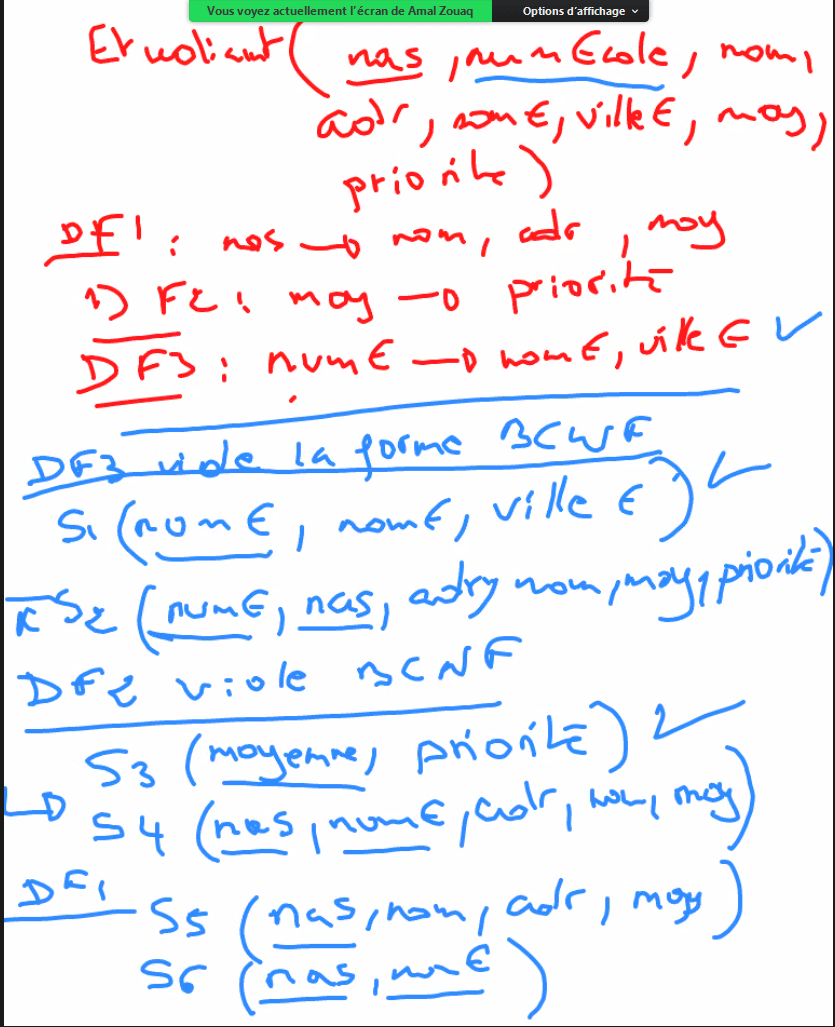 Vous voyez actuellement l'écran de Amal Zouaq Options d'affichage
Etudiant(nas, numEcole, nom,
adr, nomE, villeE, moy,
priorité)
DF1 : nas → nom, adr, moy
DF2 : moy → priorité
DF3 : numE → nomE, villeE ✓
DF3 viole la forme BCNF
S1 (numE, nomE, villeE) ✓
S2 (numE, nas, adr, nom, moy, priorité)
DF2 viole BCNF
S3 (moyenne, priorité) ✓
S4 (nas, numE, adr, nom, moy)
DF1
S5 (nas, nom, adr, moy)
S6 (nas, numE)